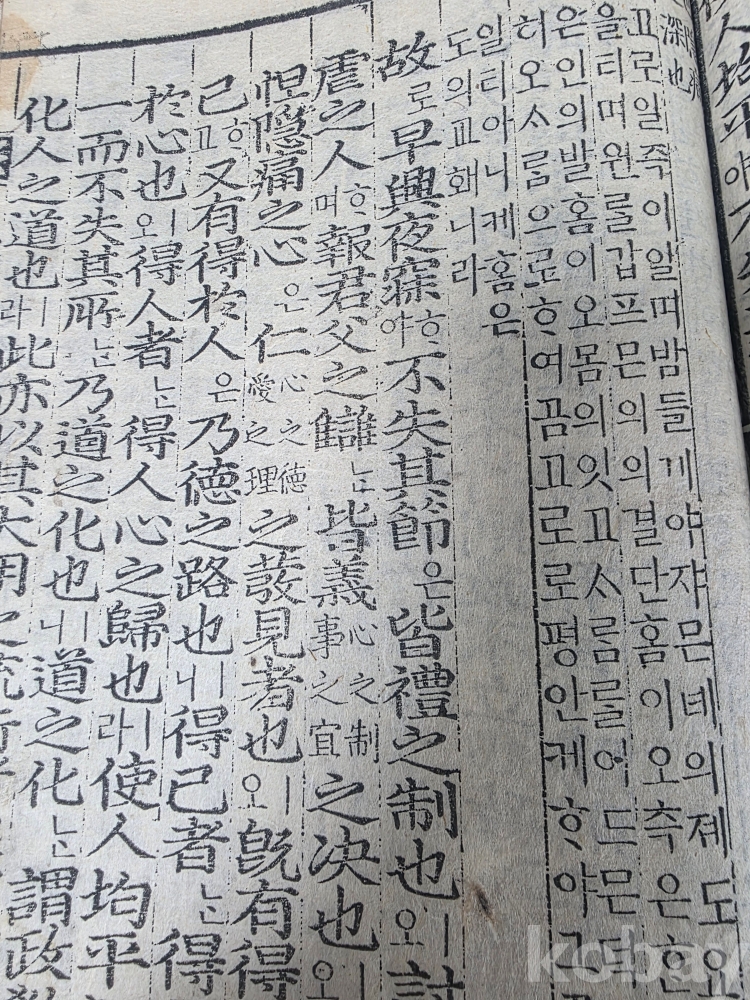 深也
고로일즉이알며밤들게야쟈믄녜의졔도요
을티며원를갑프믄의의결단홈이오측은한
은인의발홈이오몸의잇고ᄉᆞ름를어드믄덕
히오ᄉᆞ름으로ᄒᆞ여곰고로로평안케ᄒᆞ야그
일티아니케홈은
도의교홰니라
故로早興夜寐ᄒᆞ야不失其節은皆禮之制也ㅣ오討
虐之人ᄒᆞ며報君父之讎ᄂᆞᆫ皆義心之制事之宜之決也ㅣ오
怛隠痛之心은仁心之德愛之理之發見者也ㅣ오旣有得
己ᄒᆞ고又有得於人은乃德之路也ㅣ니得己者ᄂᆞᆫ得
於心也ㅣ오得人者ᄂᆞᆫ得人心之歸也ㅣ라使人均平
一而不失其所ᄂᆞᆫ乃道之化也ㅣ니道之化ᄂᆞᆫ謂政
化人之道也ㅣ라此亦以其大用之流行
kobay